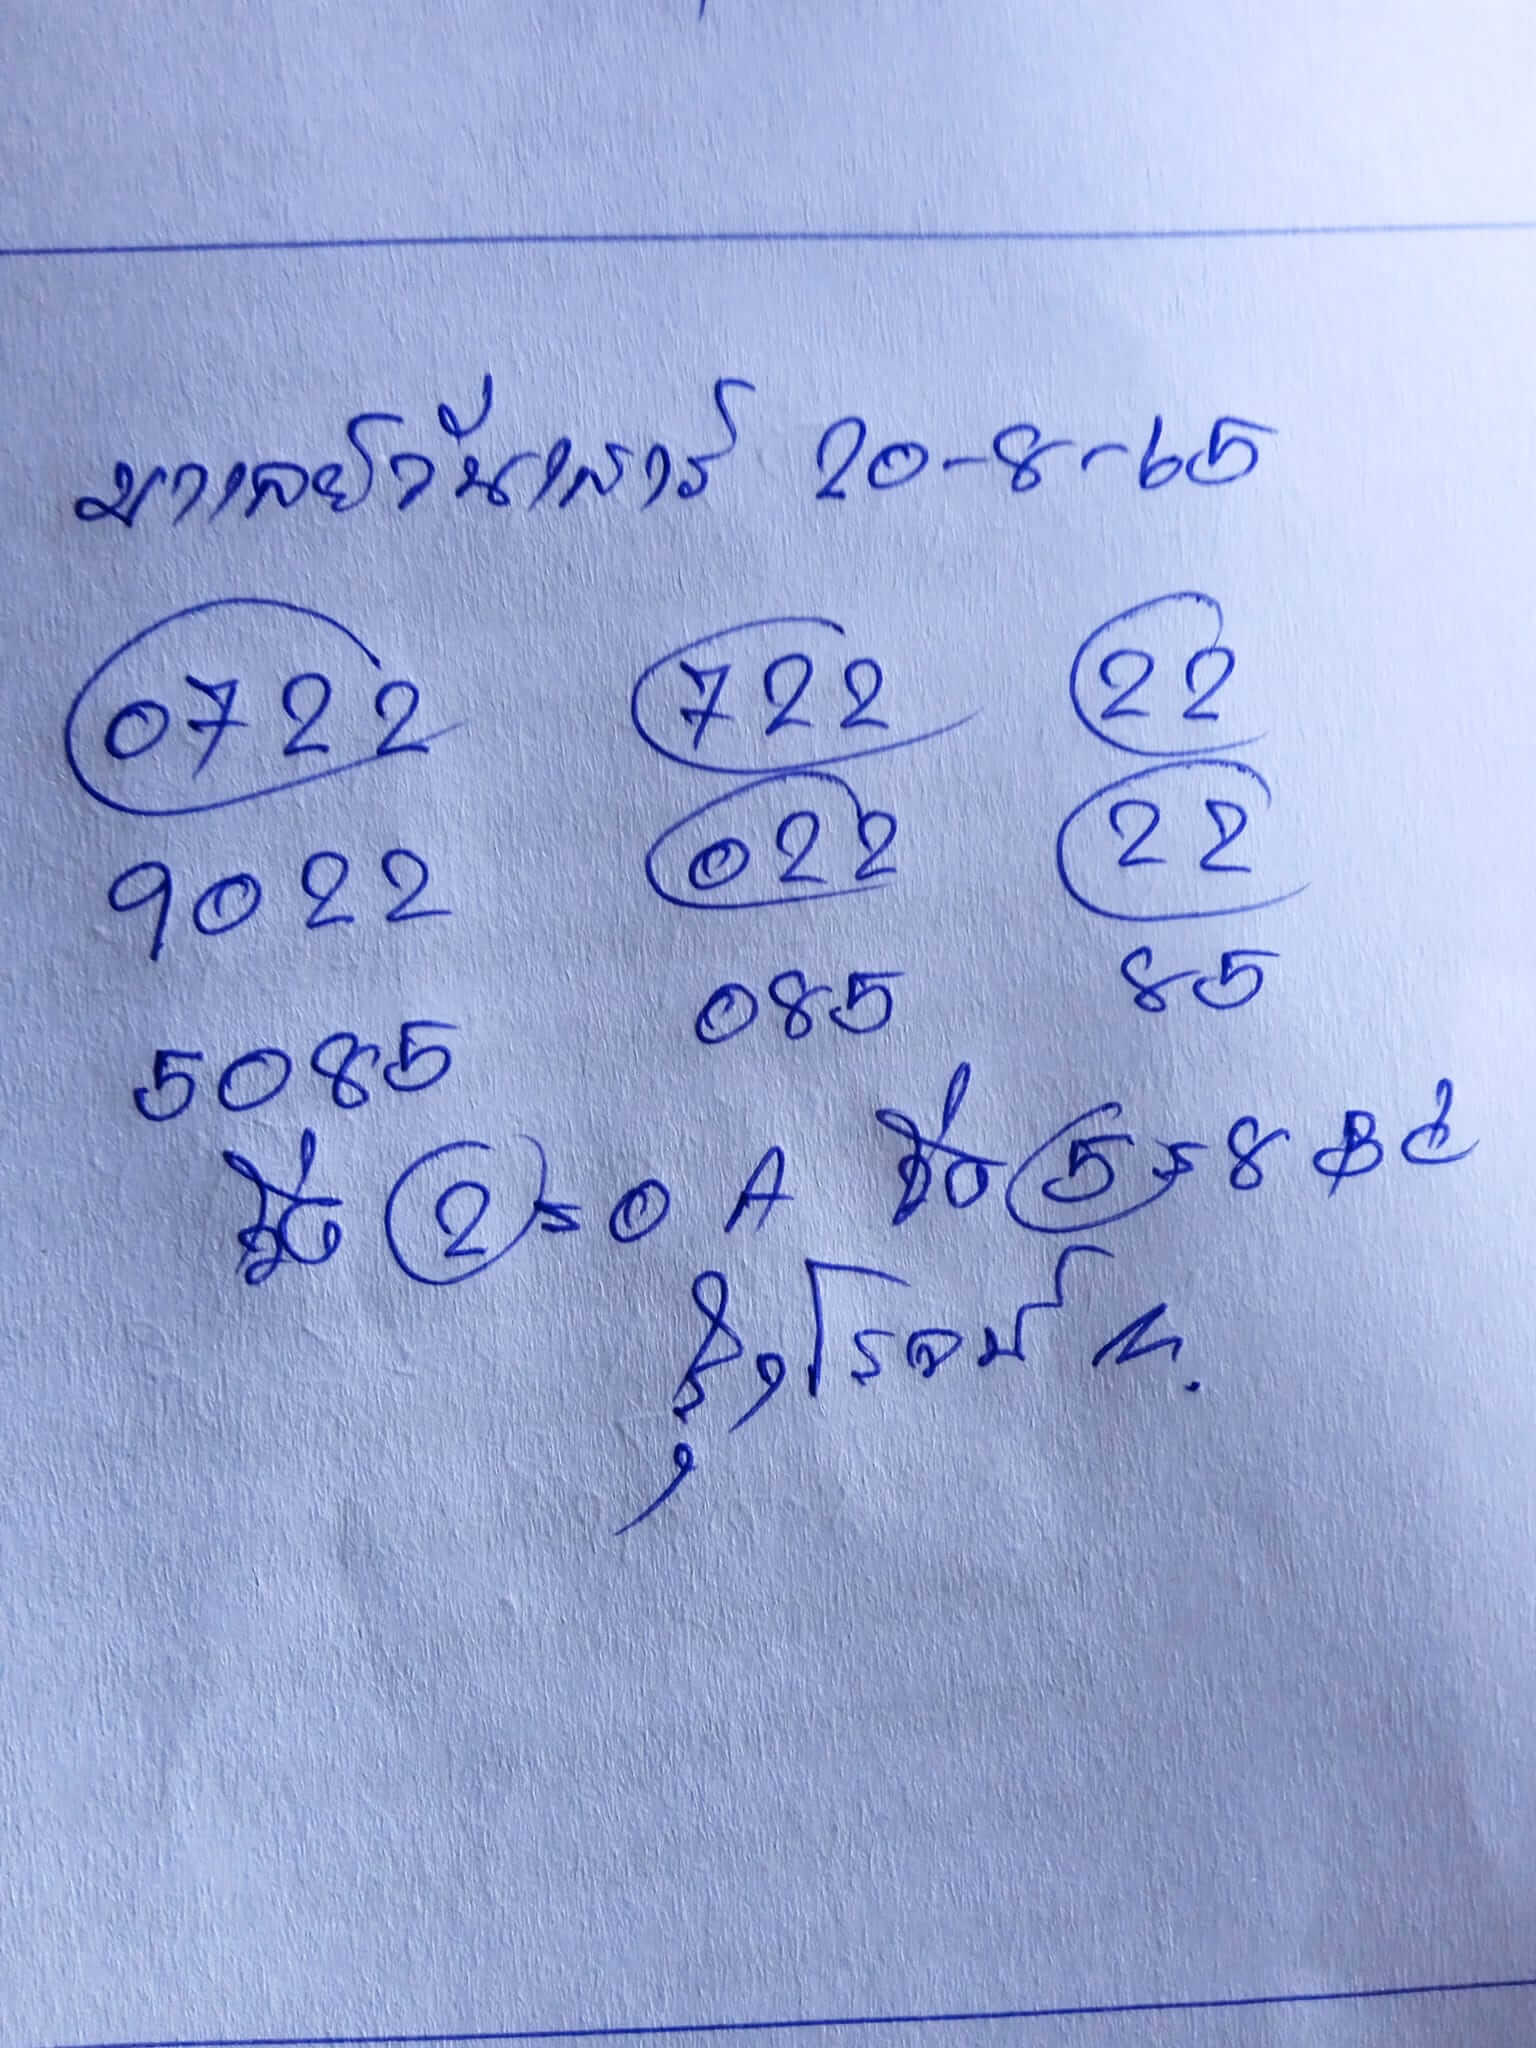 มาเลย์วันเสาร์ 20-8-65
0722 722 22
9022 022 22
5085 085 85
2 = 0 A 5 = 8 B
รุ่งโรจน์ น.